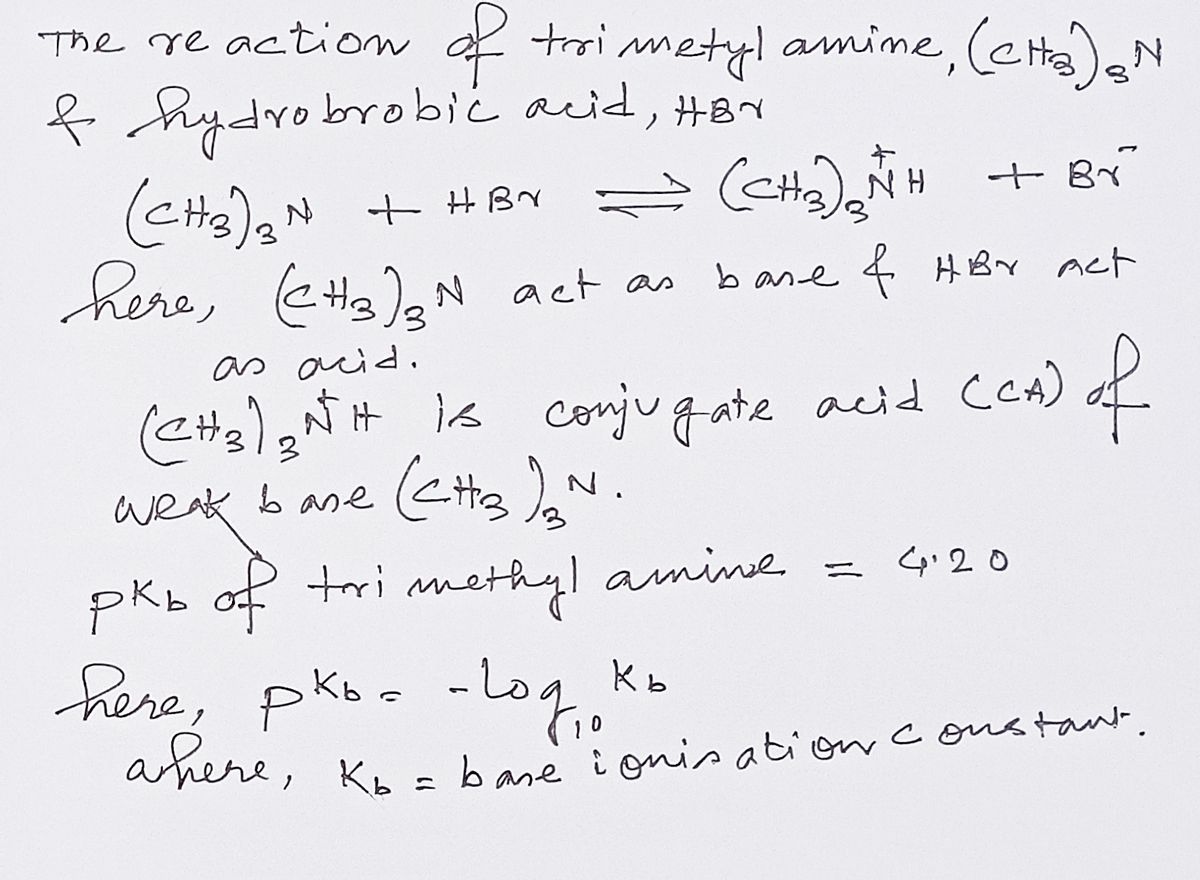 The reaction of trimetyl amine, (CH₃)₃N
& hydrobrobic acid, HBr
(CH₃)₃N + HBr ⇌ (CH₃)₃N⁺H + Br⁻
here, (CH₃)₃N act as base & HBr act
as acid.
(CH₃)₃N⁺H is conjugate acid (CA) of
weak base (CH₃)₃N.
pKb of trimethyl amine = 4.20
here, pKb = -log₁₀ Kb
where, Kb = base ionisation constant.